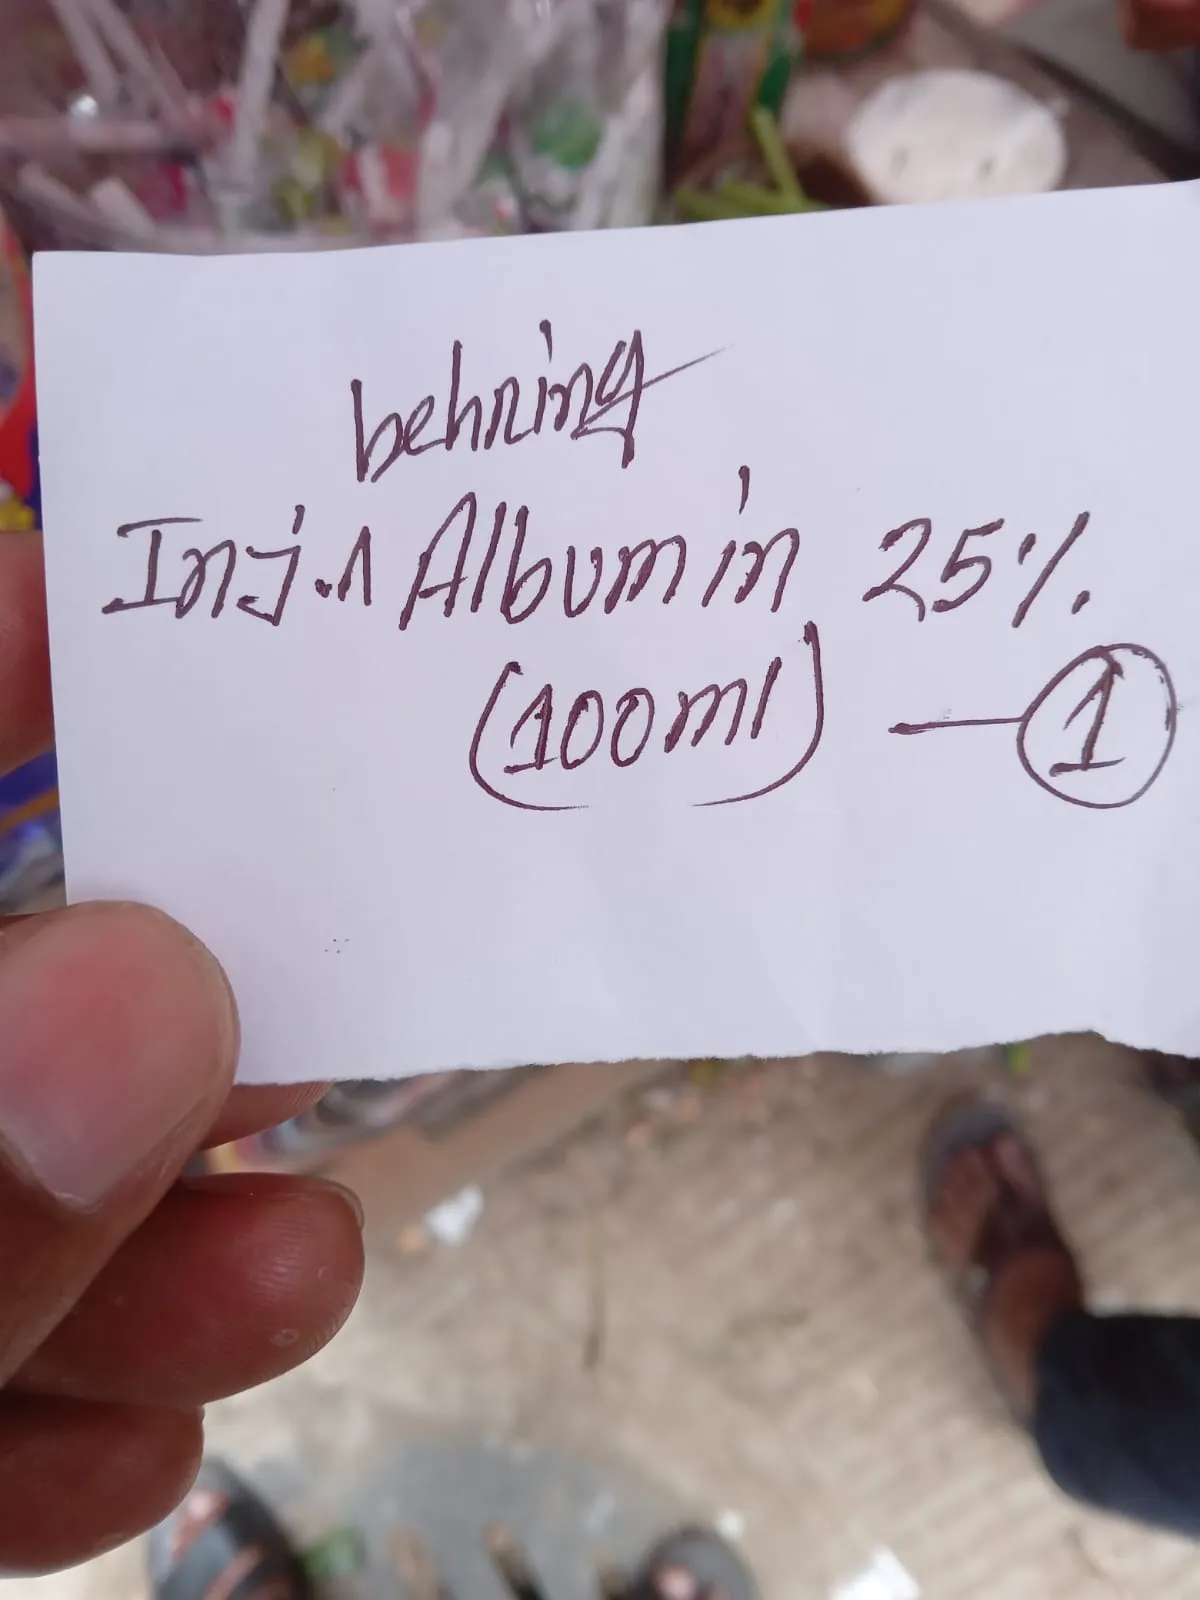 behring
Inj.1 Albumin 25%.
(100ml) — 1